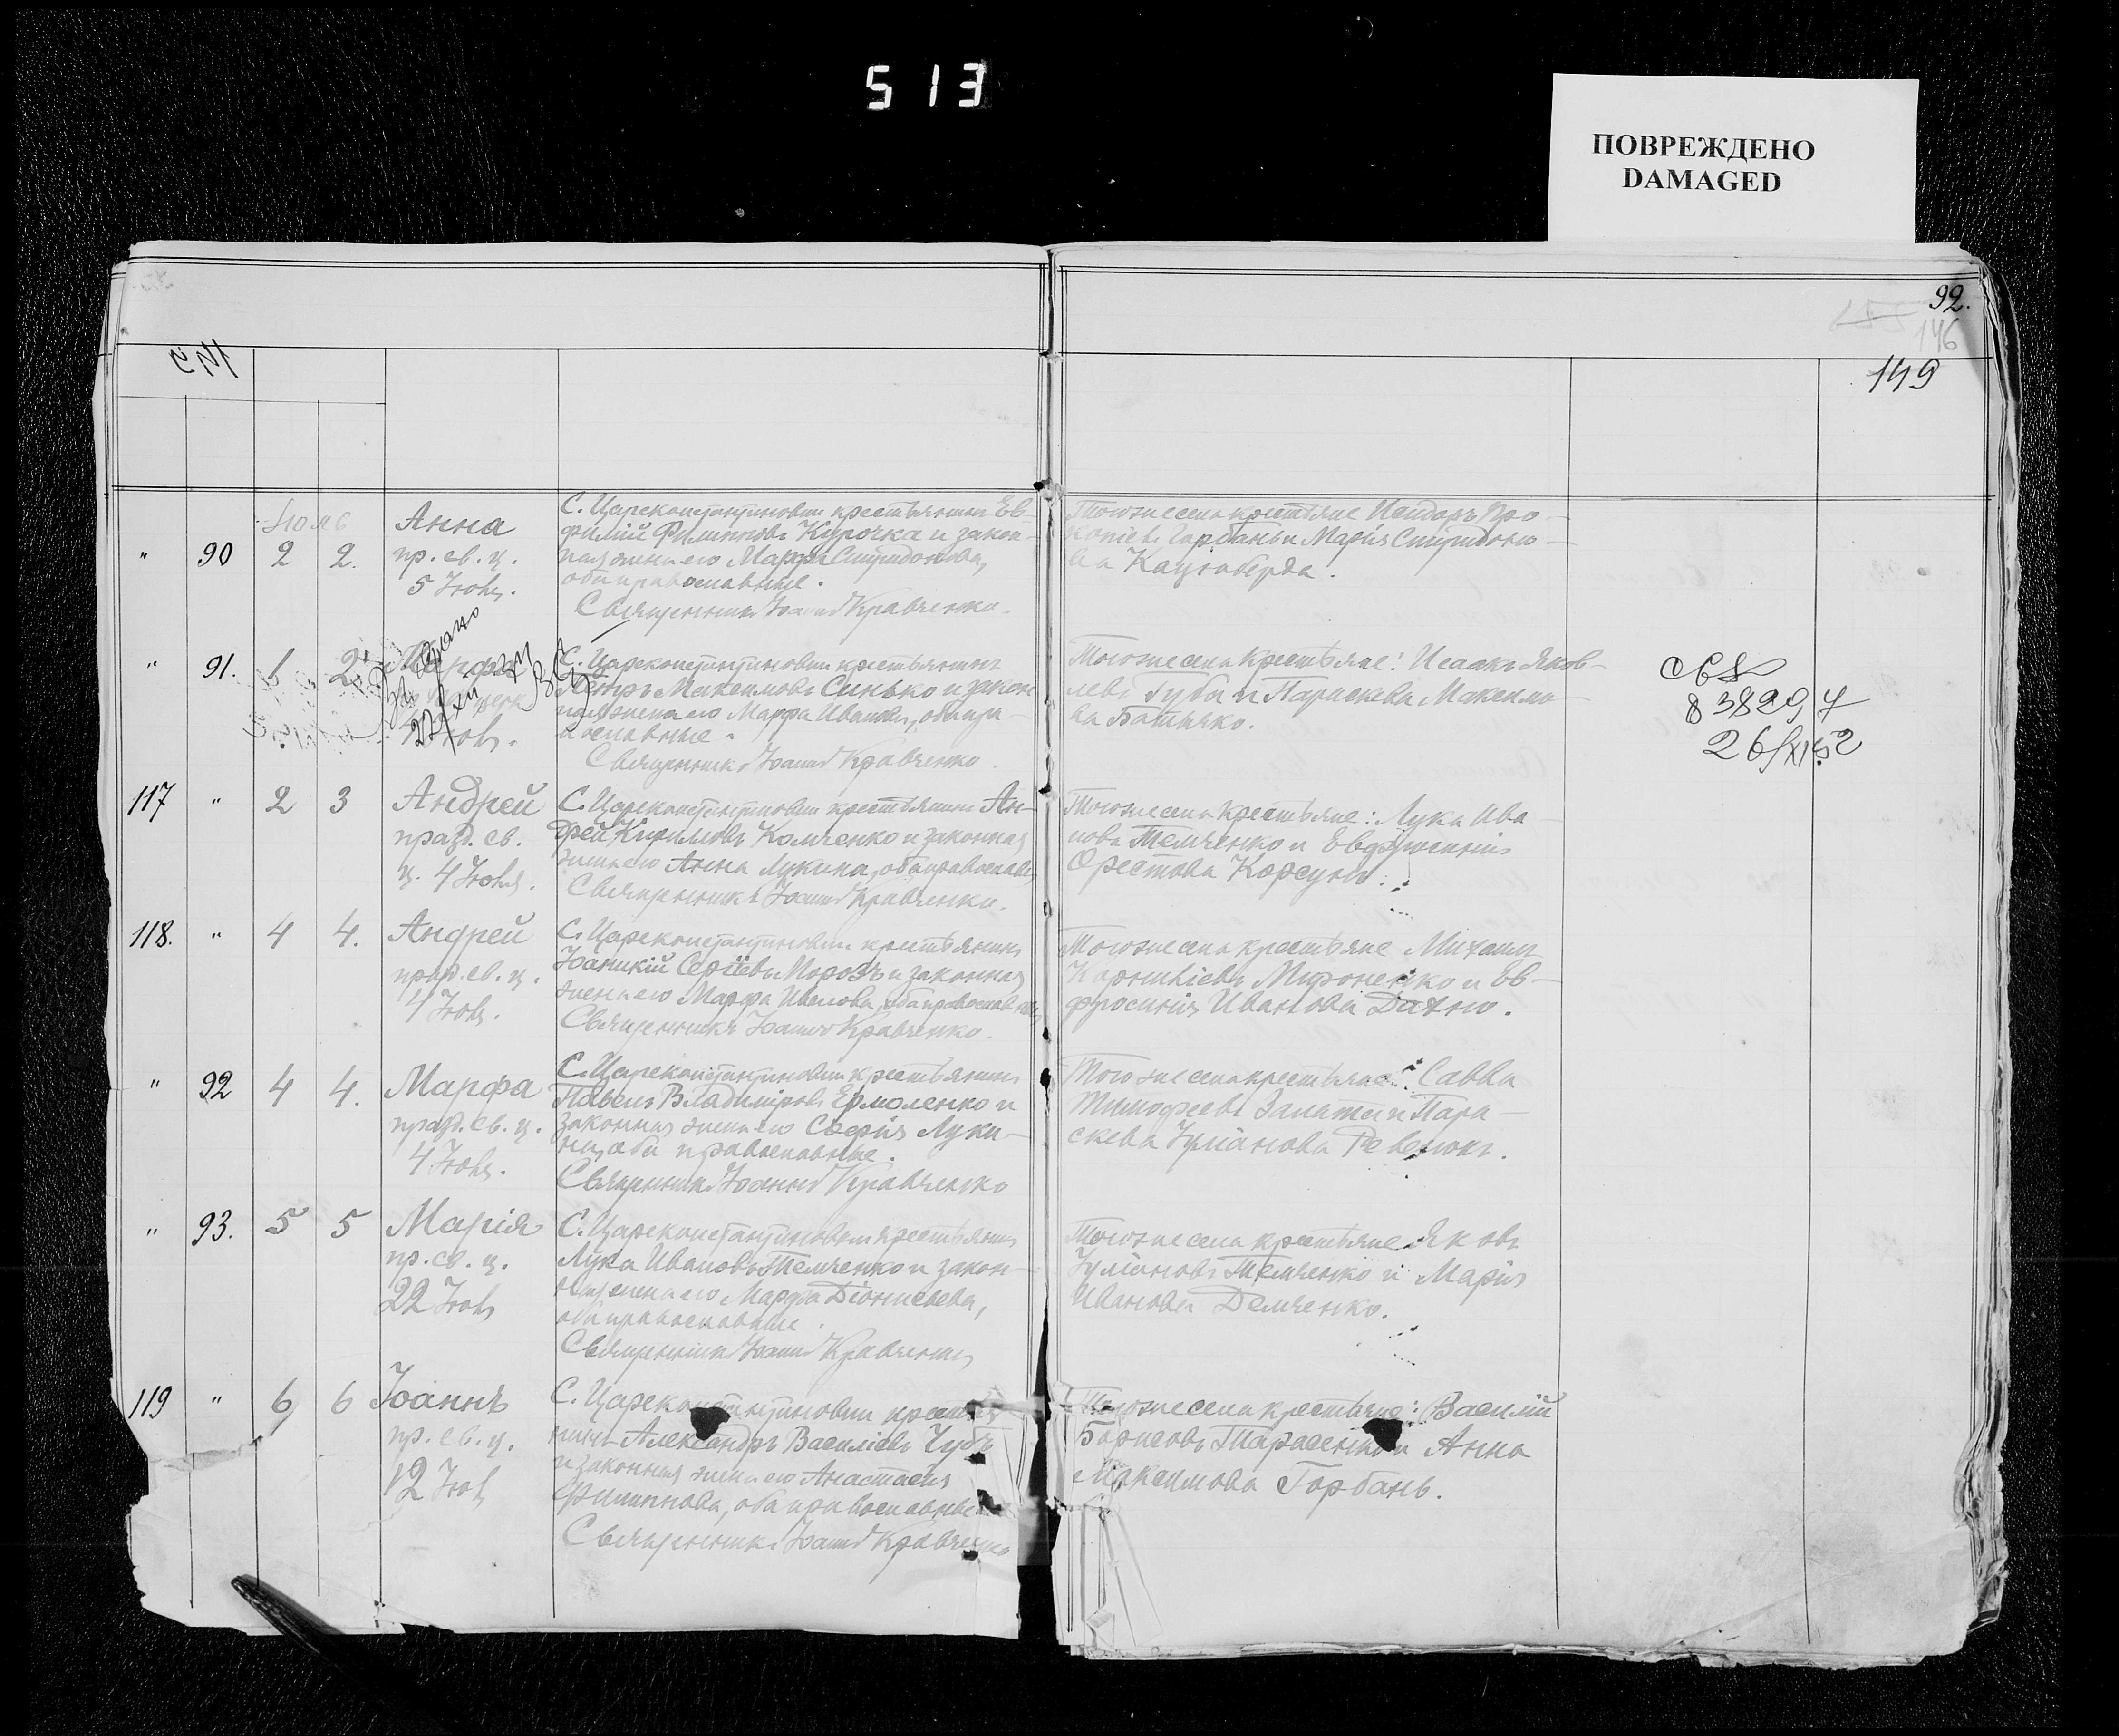 513
ПОВРЕЖДЕНО
DAMAGED
92.
146
149
Іюль
" 90 2 2.
Анна
пр. св. ц.
5 Іюля.
С. Цареконстантиновки крестьянинъ Ев-
фимій Филиповъ Курочка и закон-
ная жена его Марфа Спиридонова,
оба православные.
Священникъ Іоаннъ Кравченко.
Тогоже села крестьяне Исидоръ Про-
копіевъ Горбань и Марія Спиридоно-
ва
" 91. 1 2
Марфа
С. Цареконстантиновки крестьянинъ
Петръ Максимовъ Синько и закон
ная жена его Марфа Иванова, оба пра-
вославные.
Священникъ Іоаннъ Кравченко.
Тогоже села крестьяне: Исаакъ Яков-
левъ Губа и Параскева Максимо-
ва Батычко.
838297
26/XI 52
117 " 2 3
Андрей
празд. св.
ц. 4 Іюля.
С. Цареконстантиновки крестьянинъ Ан-
дрей Кириловъ Комченко и законная
жена его Анна Лукина, оба православ.
Священникъ Іоаннъ Кравченко.
Тогоже села крестьяне: Лука Ива-
новъ Темченко и Евфросинія
Орестова Корсунъ.
118. " 4 4.
Андрей
празд. св. ц.
4 Іюля.
С. Цареконстантиновки крестьянинъ
Іоанникій Сергіевъ Морозъ и законная
жена его Марфа Ивановa, оба православные
Священникъ Іоаннъ Кравченко.
Тогоже села крестьяне Михаилъ
Корниліевъ Мироненко и Ев-
фросинія Иванова Дахно.
" 92 4 4.
Марфа
празд. св. ц.
4 Іюля.
С. Цареконстантиновки крестьянинъ
Павелъ Владиміровъ Ермоленко и
законная жена его Софія Луки-
на, оба православные.
Священникъ Іоаннъ Кравченко
Тогоже села крестьяне: Савва
Тимофеевъ Запата и Пара-
скева Іуліанова Ревенокъ.
" 93. 5 5
Марія
пр. св. ц.
22 Іюля
С. Цареконстантиновки крестьянинъ
Лука Ивановъ Темченко и закон-
ная жена его Марфа Діонисьева,
оба православные.
Священникъ Іоаннъ Кравченко
Тогоже села крестьяне Яковъ
Іуліановъ Темченко и Марія
Иванова Демченко.
119 " 6 6
Іоаннъ
пр. св. ц.
12 Іюля
С. Цареконстантиновки крестья
нинъ Александръ Василіевъ Чубъ
и законная жена его Анастасія
Филиппова, оба православные
Священникъ Іоаннъ Кравченко
Тогоже села крестьяне: Василій
Борисовъ Тарасенко и Анна
Максимова Горбань.